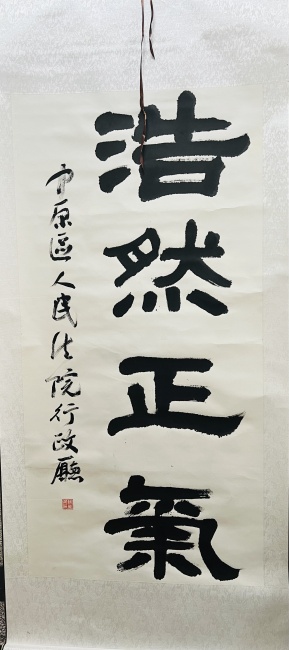 浩然正氣
中原區人民法院行政廳